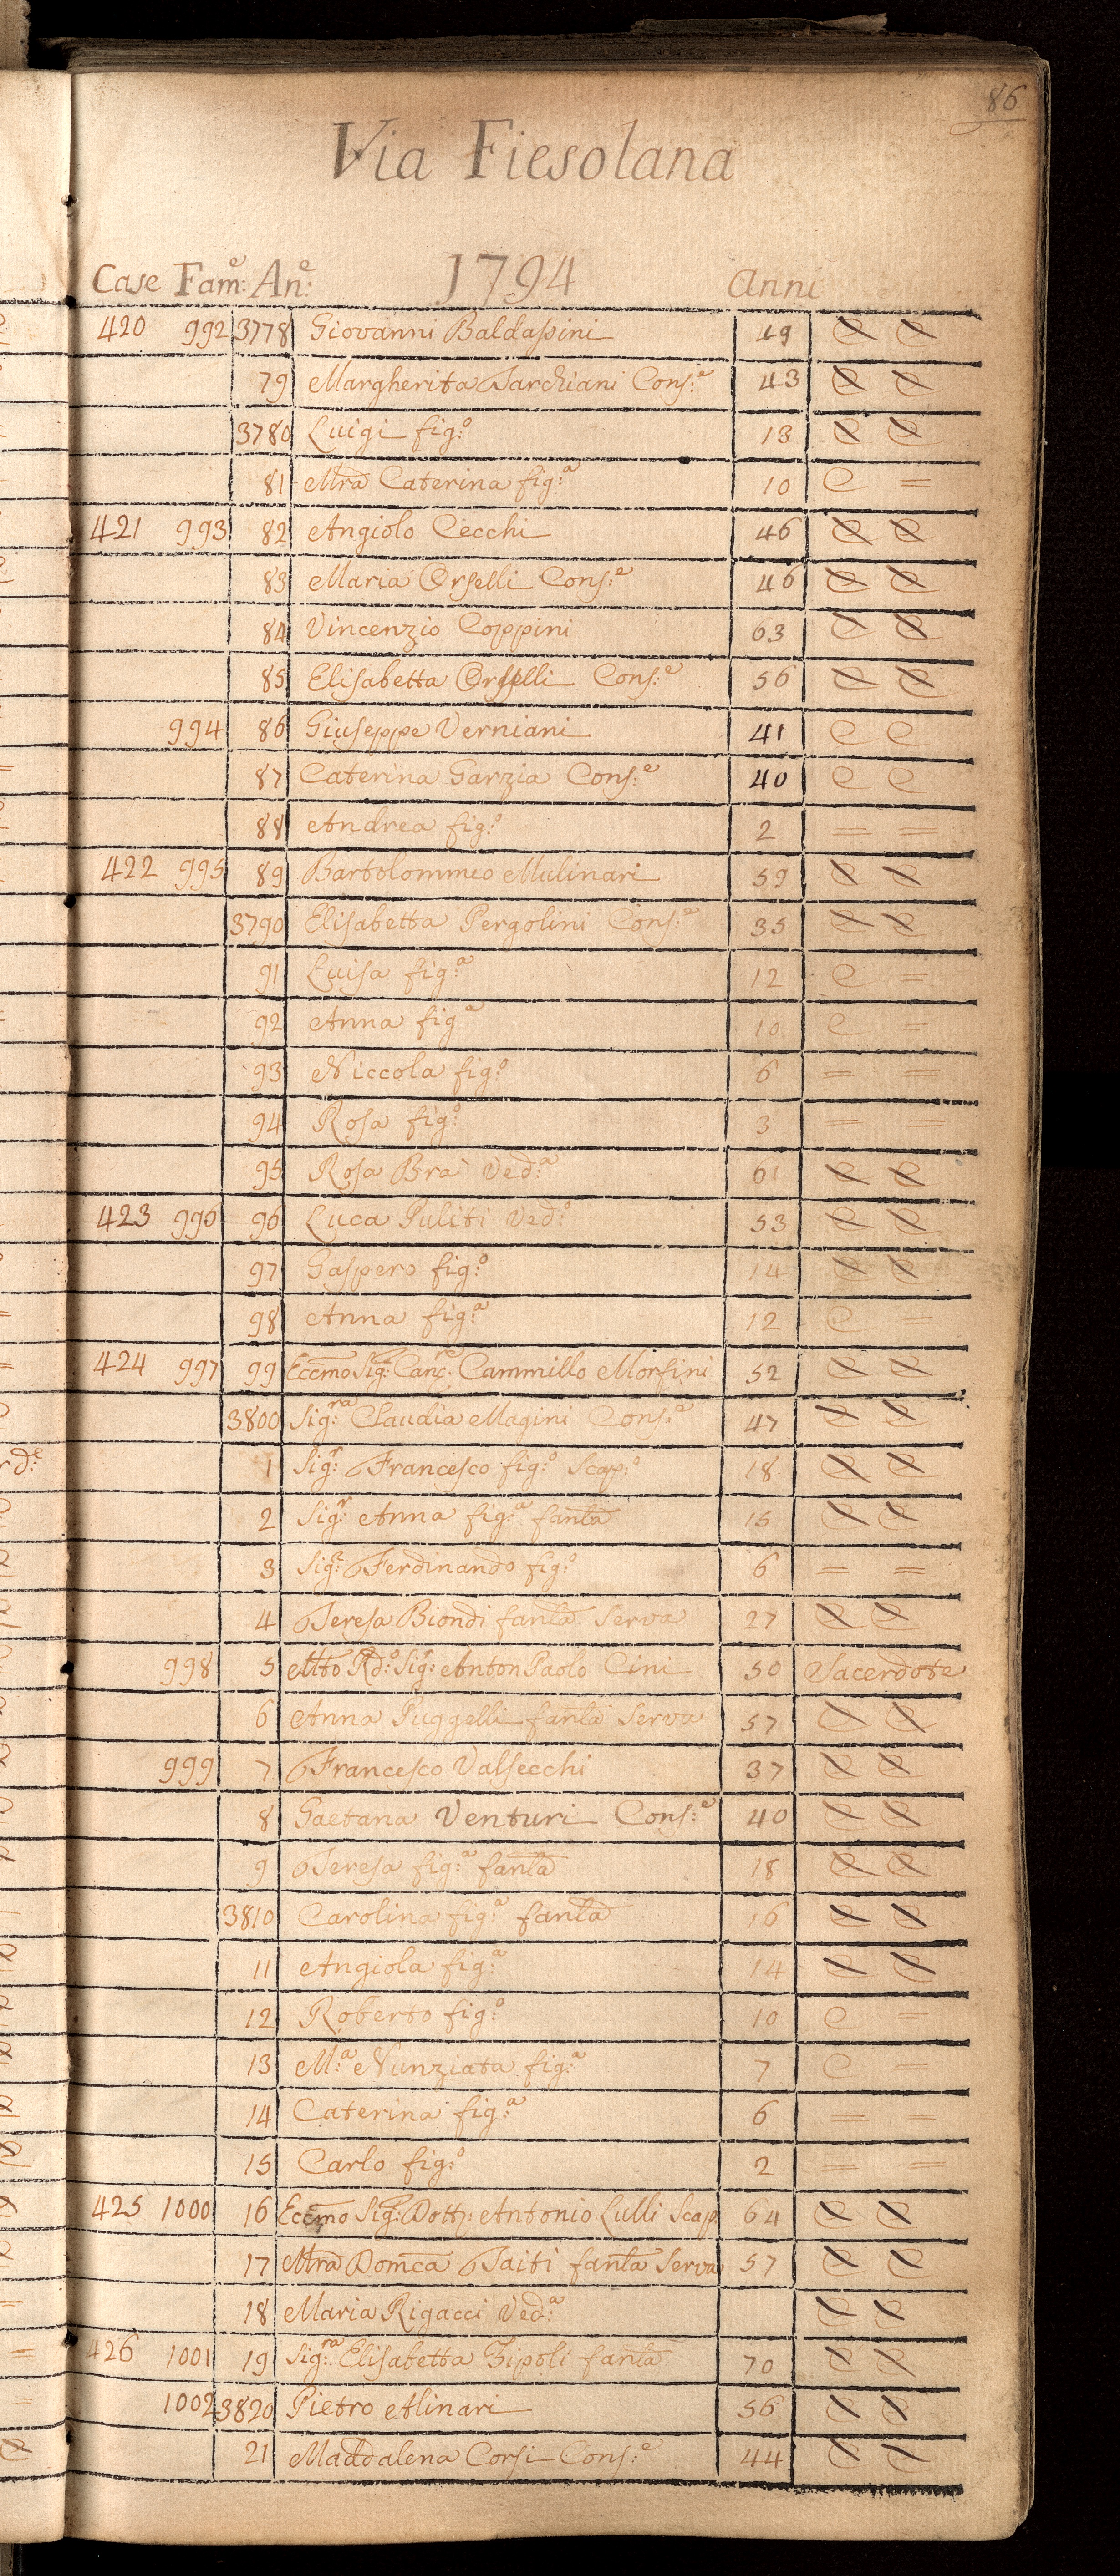 86
Via Fiesolana
Case Fam:e An:e 1794 Anni
420 992 3778 Giovanni Baldassini 49 C C
79 Margherita Tarchiani Cons:e 43 C C
3780 Luigi fig:o 13 C C
81 Mra Caterina fig:a 10 C =
421 993 82 Angiolo Cecchi 46 C C
83 Maria Orselli Cons:e 46 C C
84 Vincenzio Coppini 63 C C
85 Elisabetta Orselli Cons:e 56 C C
994 86 Giuseppe Verniani 41 C C
87 Caterina Garzia Cons:e 40 C C
88 Andrea fig:o 2 = =
422 995 89 Bartolommeo Mulinari 59 C C
3790 Elisabetta Pergolini Cons:e 35 C C
91 Luisa fig:a 12 C =
92 Anna fig:a 10 C =
93 Niccola fig:o 6 = =
94 Rosa fig: 3 = =
95 Rosa Brà Ved:a 61 C C
423 996 96 Luca Puliti Ved:o 53 C C
97 Gaspero fig:o 14 C C
98 Anna fig:a 12 C =
424 997 99 Eccmo Sig:r Canc:re Cammillo Morsini 52 C C
3800 Sig:ra Claudia Magini Cons:e 47 C C
1 Sig:r Francesco fig:o Scap:o 18 C C
2 Sig:r Anna fig:a fanla 15 C C
3 Sig:r Ferdinando fig:o 6 = =
4 Teresa Biondi fanla Serva 27 C C
998 5 Mto Rd:o Sig:r Anton Paolo Cini 50 Sacerdote
6 Anna Puggelli fanla Serva 57 C C
999 7 Francesco Valsecchi 37 C C
8 Gaetana Venturi Cons:e 40 C C
9 Teresa fig:a fanla 18 C C
3810 Carolina fig:a fanla 16 C C
11 Angiola fig:a 14 C C
12 Roberto fig:o 10 C =
13 M:a Nunziata fig:a 7 C =
14 Caterina fig:a 6 = =
15 Carlo fig:o 2 = =
425 1000 16 Eccmo Sig:r Dott: Antonio Lulli Scap 64 C C
17 Mra Domca Taiti fanla Serva 57 C C
18 Maria Rigacci Ved:a C C
426 1001 19 Sig:ra Elisabetta Zipoli fanla 70 C C
1002 3820 Pietro Alinari 56 C C
21 Maddalena Corsi Cons:e 44 C C